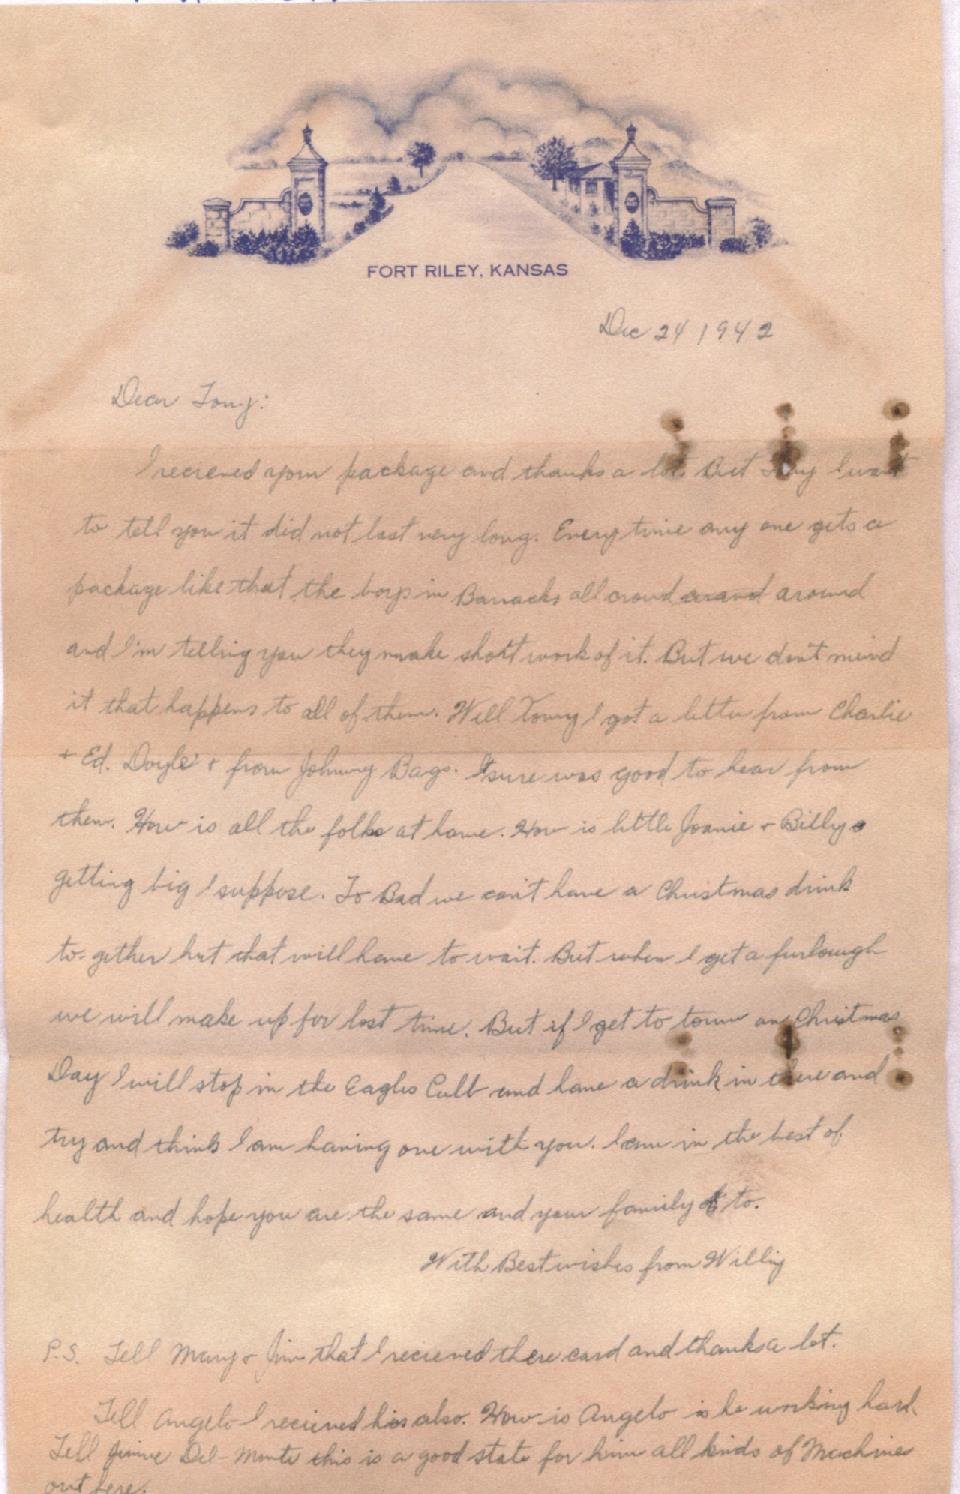 FORT RILEY, KANSAS
Dec 24 1942
Dear Tony:
I recieved your package and thanks a lot. But Tony I want
to tell you it did not last very long. Every time any one gets a
package like that the boys in Barracks all croud around
and I'm telling you they make short work of it. But we don't mind
it that happens to all of them. Will Tony I got a letter from Charlie
+ Ed. Doyle + from Johnny Bags. It sure was good to hear from
them. How is all the folks at home. How is little Joanie + Billy
getting big I suppose. To Bad we can't have a Christmas drink
to-gether but that will have to wait. But when I get a furlough
we will make up for lost time. But if I get to town on Christmas
Day I will stop in the Eagles Culb and have a drink in there and
try and think I am having one with you. I am in the best of
health and hope you are the same and your family to.
With Best wishes from Willy
P.S. Tell Mary + Jim that I recieved there card and thanks a lot.
Tell Angelo I recieved his also. How is Angelo is he working hard.
Tell Jimmie Del-Monte this is a good state for him all kinds of Machine
out here.